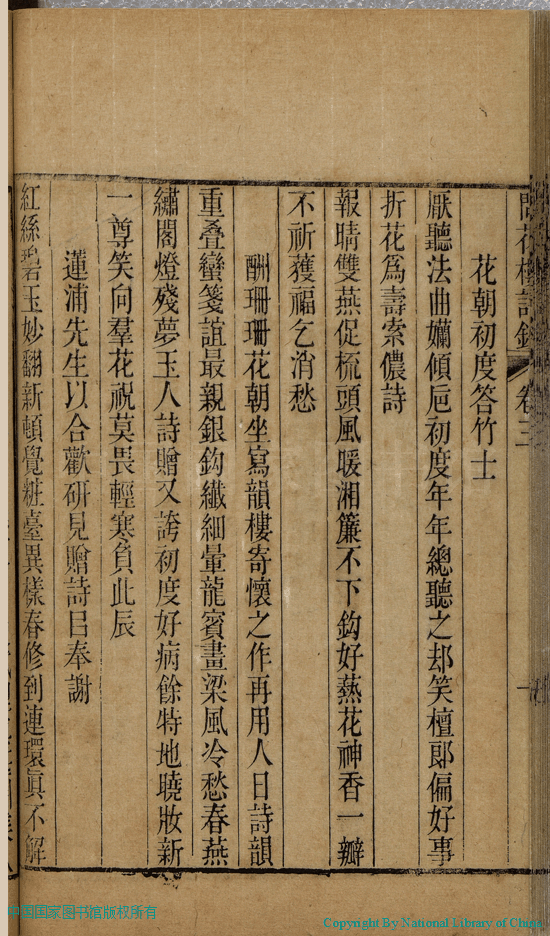 聞花樓詩鈔 卷三
花朝初度答竹士
厭聽法曲嬾傾卮初度年年總聽之却笑檀郎偏好事
折花爲壽索儂詩
報晴雙燕促梳頭風暖湘簾不下鈎好爇花神香一瓣
不祈獲福乞消愁
酬珊珊花朝坐寫韻樓寄懷之作再用人日詩韻
重叠蠻箋誼最親銀鈎纖細暈龍賓畫梁風冷愁春燕
繡閣燈殘夢玉人詩贈又誇初度好病餘特地曉妝新
一尊笑向羣花祝莫畏輕寒負此辰
蓮浦先生以合歡研見贈詩㠯奉謝
紅絲碧玉妙翻新頓覺粧臺異樣春修到連環眞不解
中国国家图书馆版权所有
Copyright By National Library of China